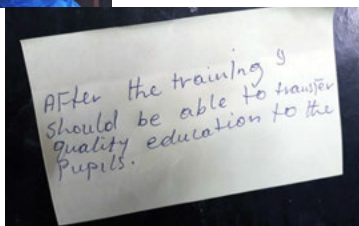 AFter the training I
should be able to transfer
quality education to the
Pupils.